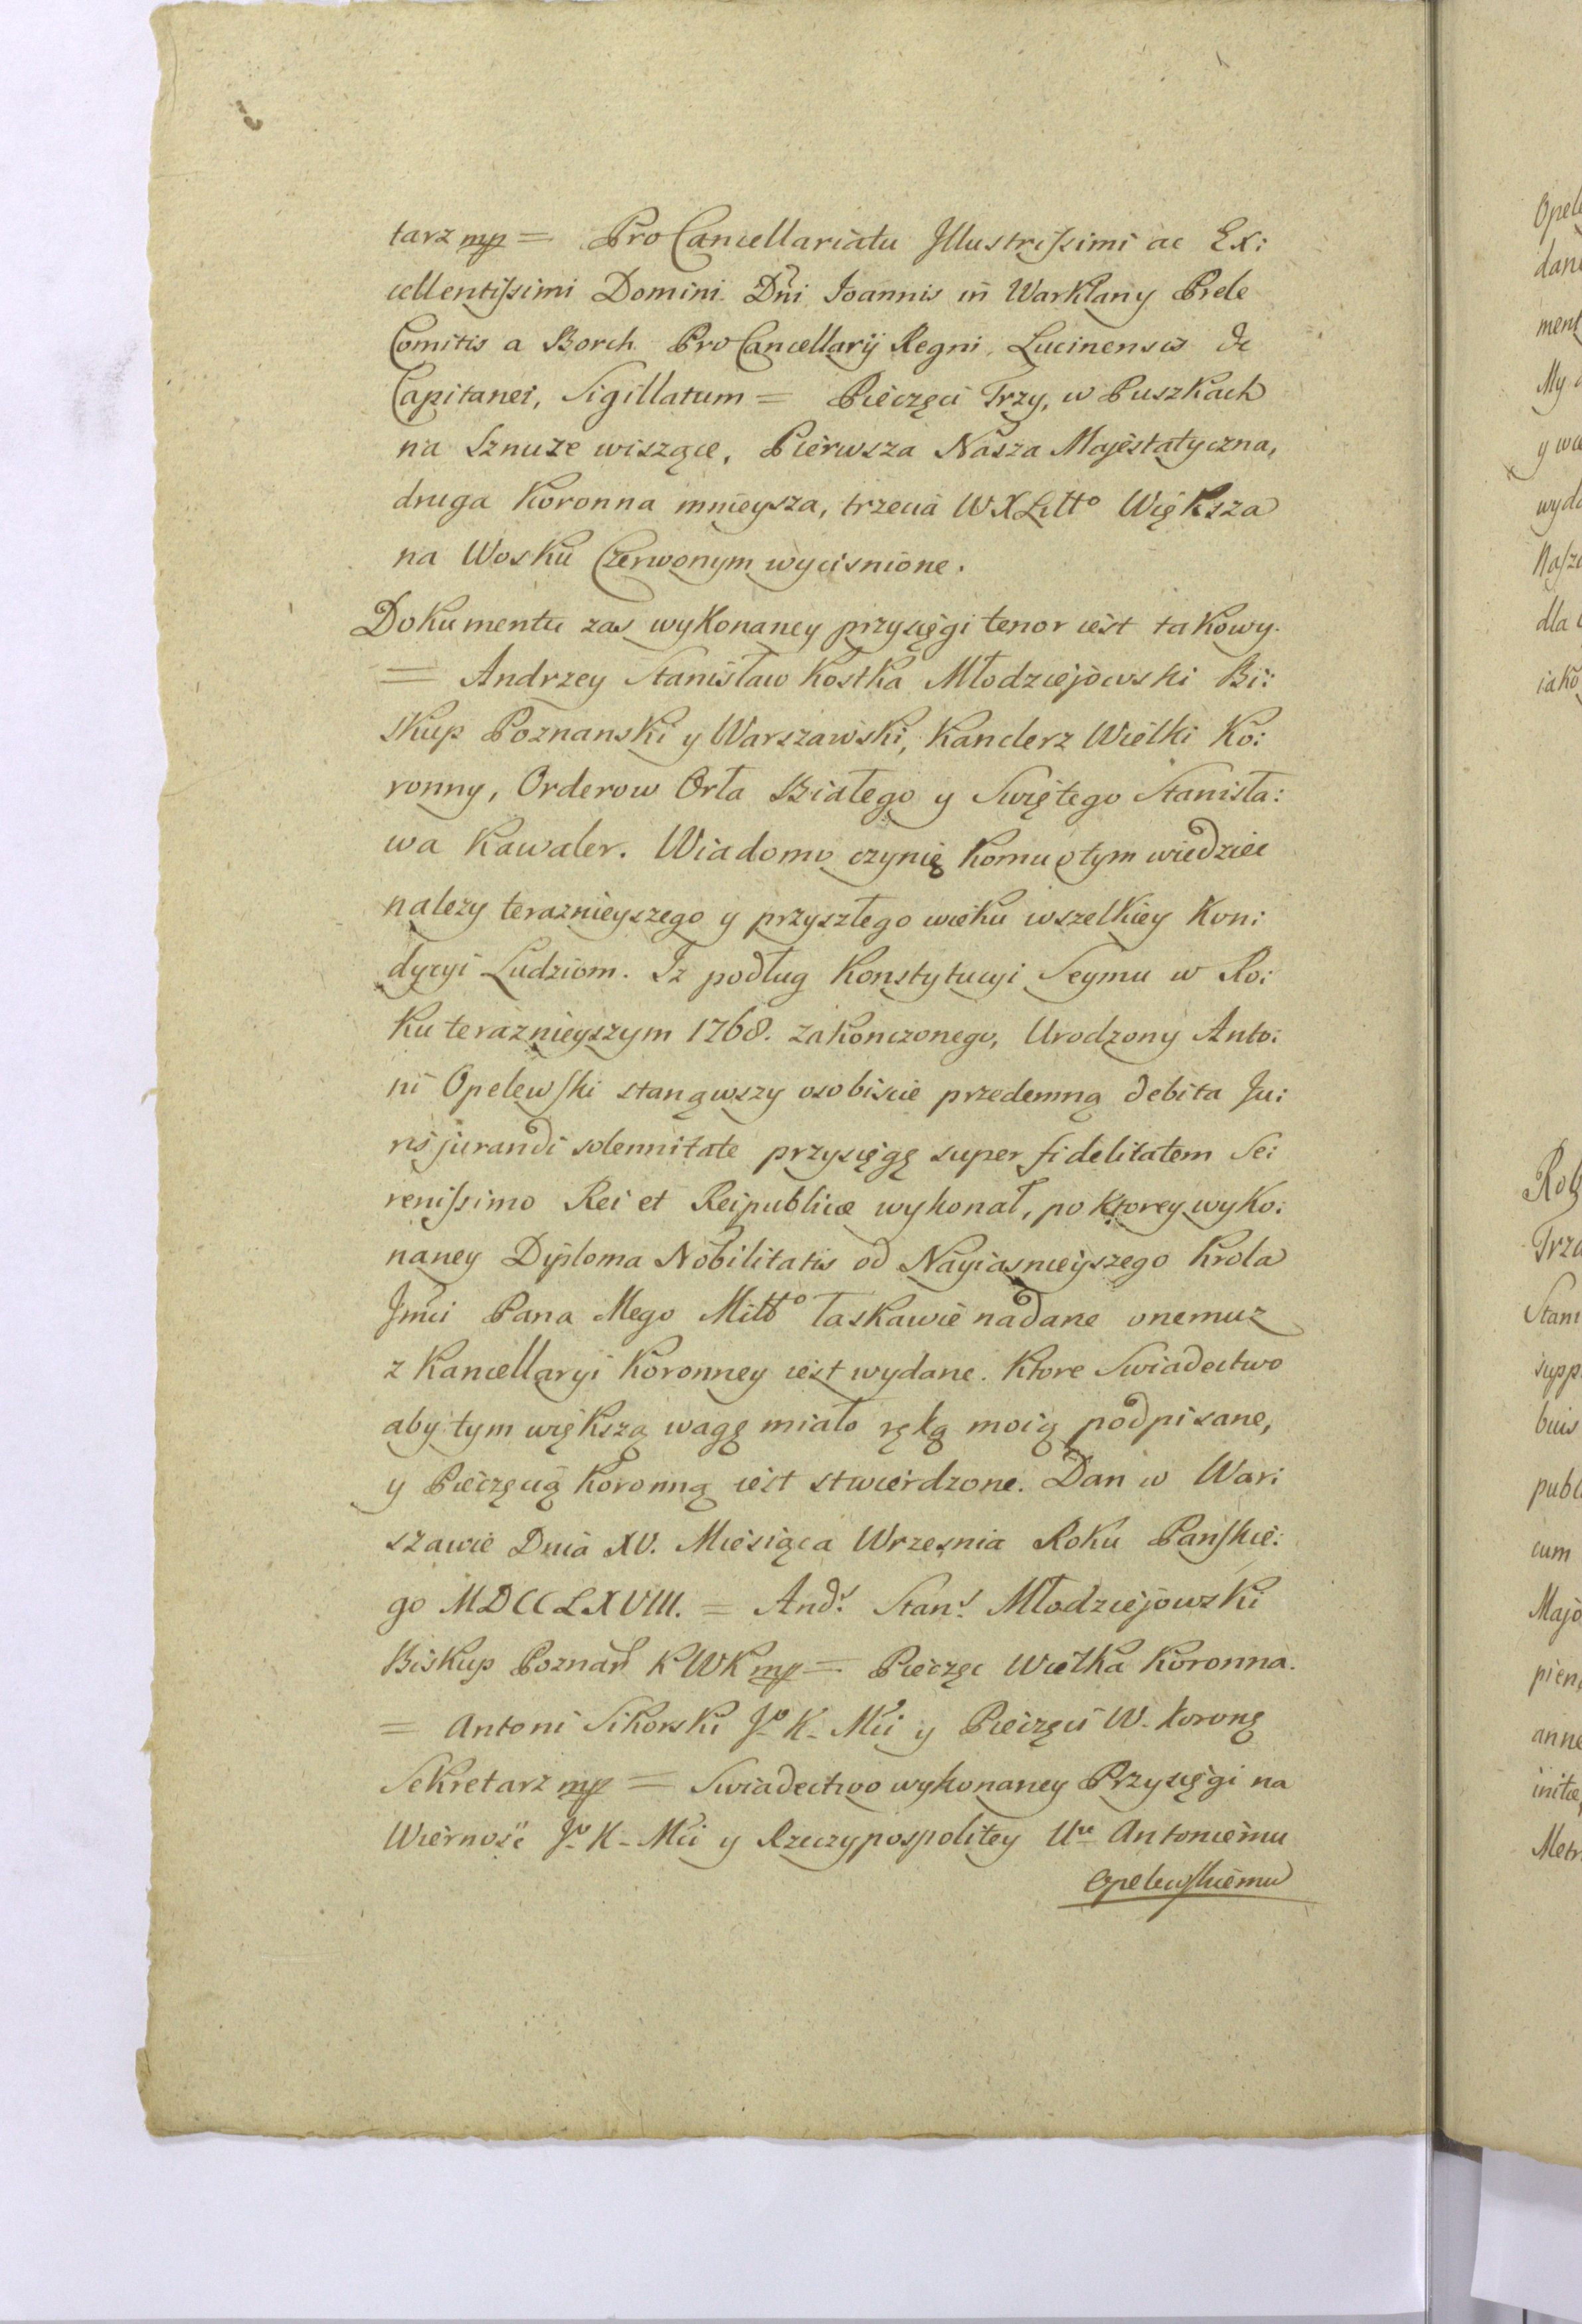 tarz mp = Pro Cancellariatu Jllustrissimi ac Ex:
cellentissimi Domini Dñi Joannis in Warklany Prele
Comitis a Borch Pro Cancellarij Regni, Lucinensis &c
Capitanei, Sigillatum = Pieczęci Trzy, w Puszkach
na Sznuze wiszące, Pierwsza Nasza Majestatyczna,
druga Koronna mnieysza, trzecia WXLittº Większa
na Wosku Czerwonym wycisnione.
Dokumentu zas wykonaney przysięgi tenor iest takowy.
= Andrzey Stanisław Kostka Młodziejowski Bi:
skup Poznanski y Warszawski, Kanclerz Wielki Ko:
ronny, Orderow Orła Białego y Swiętego Stanisła:
wa Kawaler. Wiadomo czynię komu o tym wiedziec
nalezy teraznieyszego y przyszłego wieku wszelkiey Kon:
dycyi Ludziom. Iz podług Konstytucyi Seymu w Ro:
ku teraznieyszym 1768. zakonczonego, Urodzony Anto:
ni Opelewski stanąwszy osobiscie przedemną debita Ju:
risjurandi solennitate przysięgę super fidelitatem Se:
renissimo Rei et Reipublicæ wykonał, po ktorey wyko:
naney Dyploma Nobilitatis od Nayiasnieyszego Krola
Jmci Pana Mego Miłłº łaskawie nadane onemuz
z Kancellaryi Koronney iest wydane. Ktore Swiadectwo
aby tym większą wagę miało ręką moią podpisane,
y Pieczęcią Koronną iest stwierdzone. Dan w War:
szawie Dnia XV. Miesiąca Wrzesnia Roku Panskie:
go MDCCLXVIII. = Andr. Stans. Młodziejowski
Biskup Poznań KWK mp = Pieczęc Wielka Koronna.
= Antoni Sikorski Jº K. Mci y Pieczęci W. Koroną
Sekretarz mp = Swiadectwo wykonaney Przysięgi na
Wiernosć Jº K. Mci y Rzeczypospolitey Uu Antoniemu
Opelewskiemu